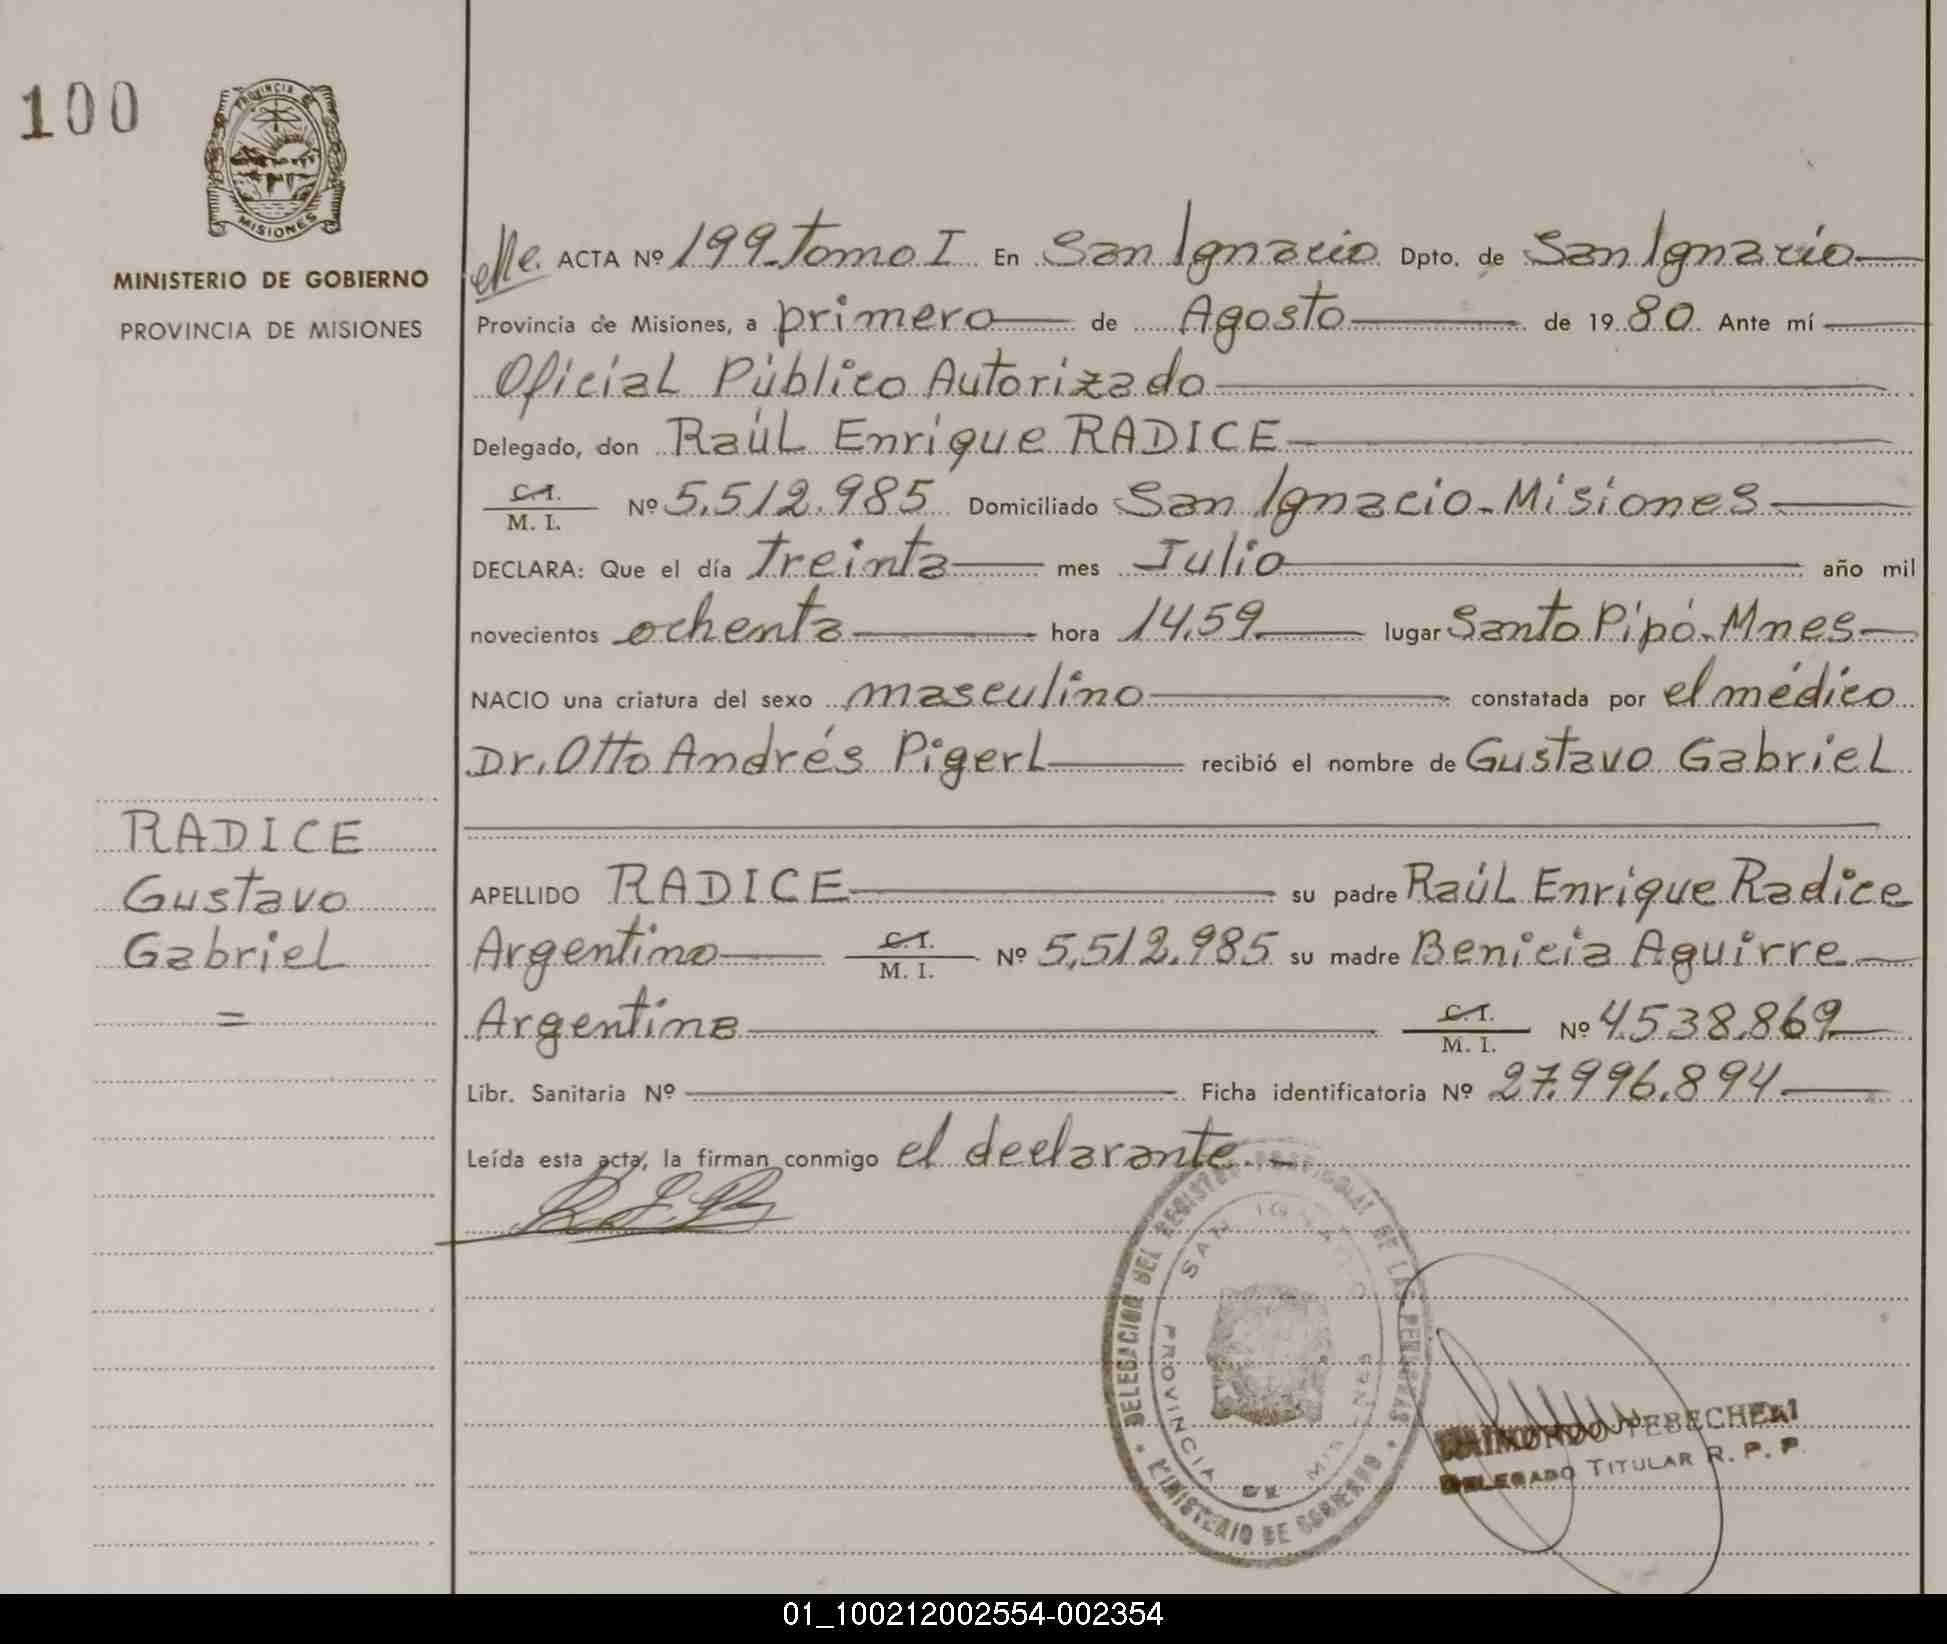 100
PROVINCIA DE
MISIONES
MINISTERIO DE GOBIERNO
PROVINCIA DE MISIONES
RADICE
Gustavo
Gabriel
=
ACTA Nº 199. Tomo I En San Ignacio Dpto. de San Ignacio
Provincia de Misiones, a primero de Agosto de 1980 Ante mí
Oficial Público Autorizado
Delegado, don Raúl Enrique RADICE
C.I.
M. I. Nº 5.512.985 Domiciliado San Ignacio-Misiones
DECLARA: Que el día treinta mes Julio año mil
novecientos ochenta hora 14.59 lugar Santo Pipó-Mnes
NACIO una criatura del sexo masculino constatada por el médico
Dr. Otto Andrés Pigerl recibió el nombre de Gustavo Gabriel
APELLIDO RADICE su padre Raúl Enrique Radice
Argentino C.I. M. I. Nº 5.512.985 su madre Benicia Aguirre
Argentina C.I. M. I. Nº 4.538.869
Libr. Sanitaria Nº Ficha identificatoria Nº 27.996.894
Leída esta acta, la firman conmigo el declarante.-
DELEGACION DEL REGISTRO PROVINCIAL DE LAS PERSONAS
MINISTERIO DE GOBIERNO
SAN IGNACIO
PROVINCIA DE MISIONES
RAIMUNDO
DELEGADO TITULAR R. P. P.
01_100212002554-002354